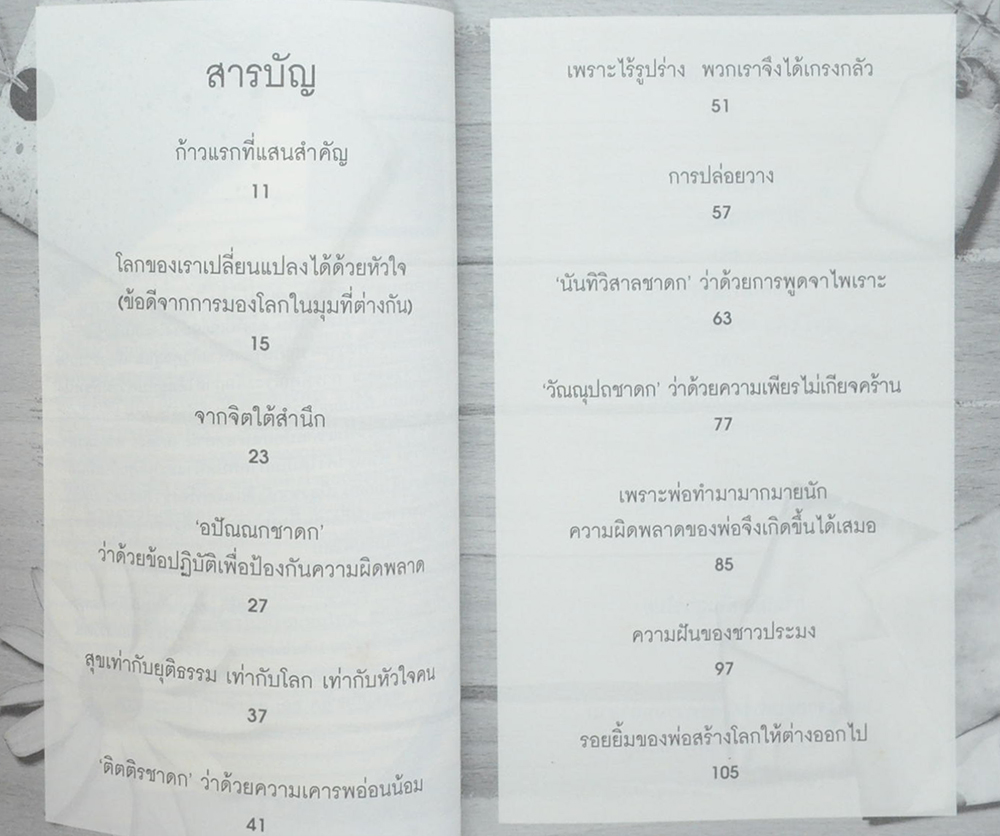 สารบัญ
ก้าวแรกที่แสนสำคัญ
11
โลกของเราเปลี่ยนแปลงได้ด้วยหัวใจ
(ข้อดีจากการมองโลกในมุมที่ต่างกัน)
15
จากจิตใต้สำนึก
23
'อปัณณกชาดก'
ว่าด้วยข้อปฏิบัติเพื่อป้องกันความผิดพลาด
27
สุขเท่ากับยุติธรรม เท่ากับโลก เท่ากับหัวใจคน
37
'ติตติรชาดก' ว่าด้วยความเคารพอ่อนน้อม
41
เพราะไร้รูปร่าง พวกเราจึงได้เกรงกลัว
51
การปล่อยวาง
57
'นันทิวิสาลชาดก' ว่าด้วยการพูดจาไพเราะ
63
'วัณณุปถชาดก' ว่าด้วยความเพียรไม่เกียจคร้าน
77
เพราะพ่อทำมามากมายนัก
ความผิดพลาดของพ่อจึงเกิดขึ้นได้เสมอ
85
ความฝันของชาวประมง
97
รอยยิ้มของพ่อสร้างโลกให้ต่างออกไป
105